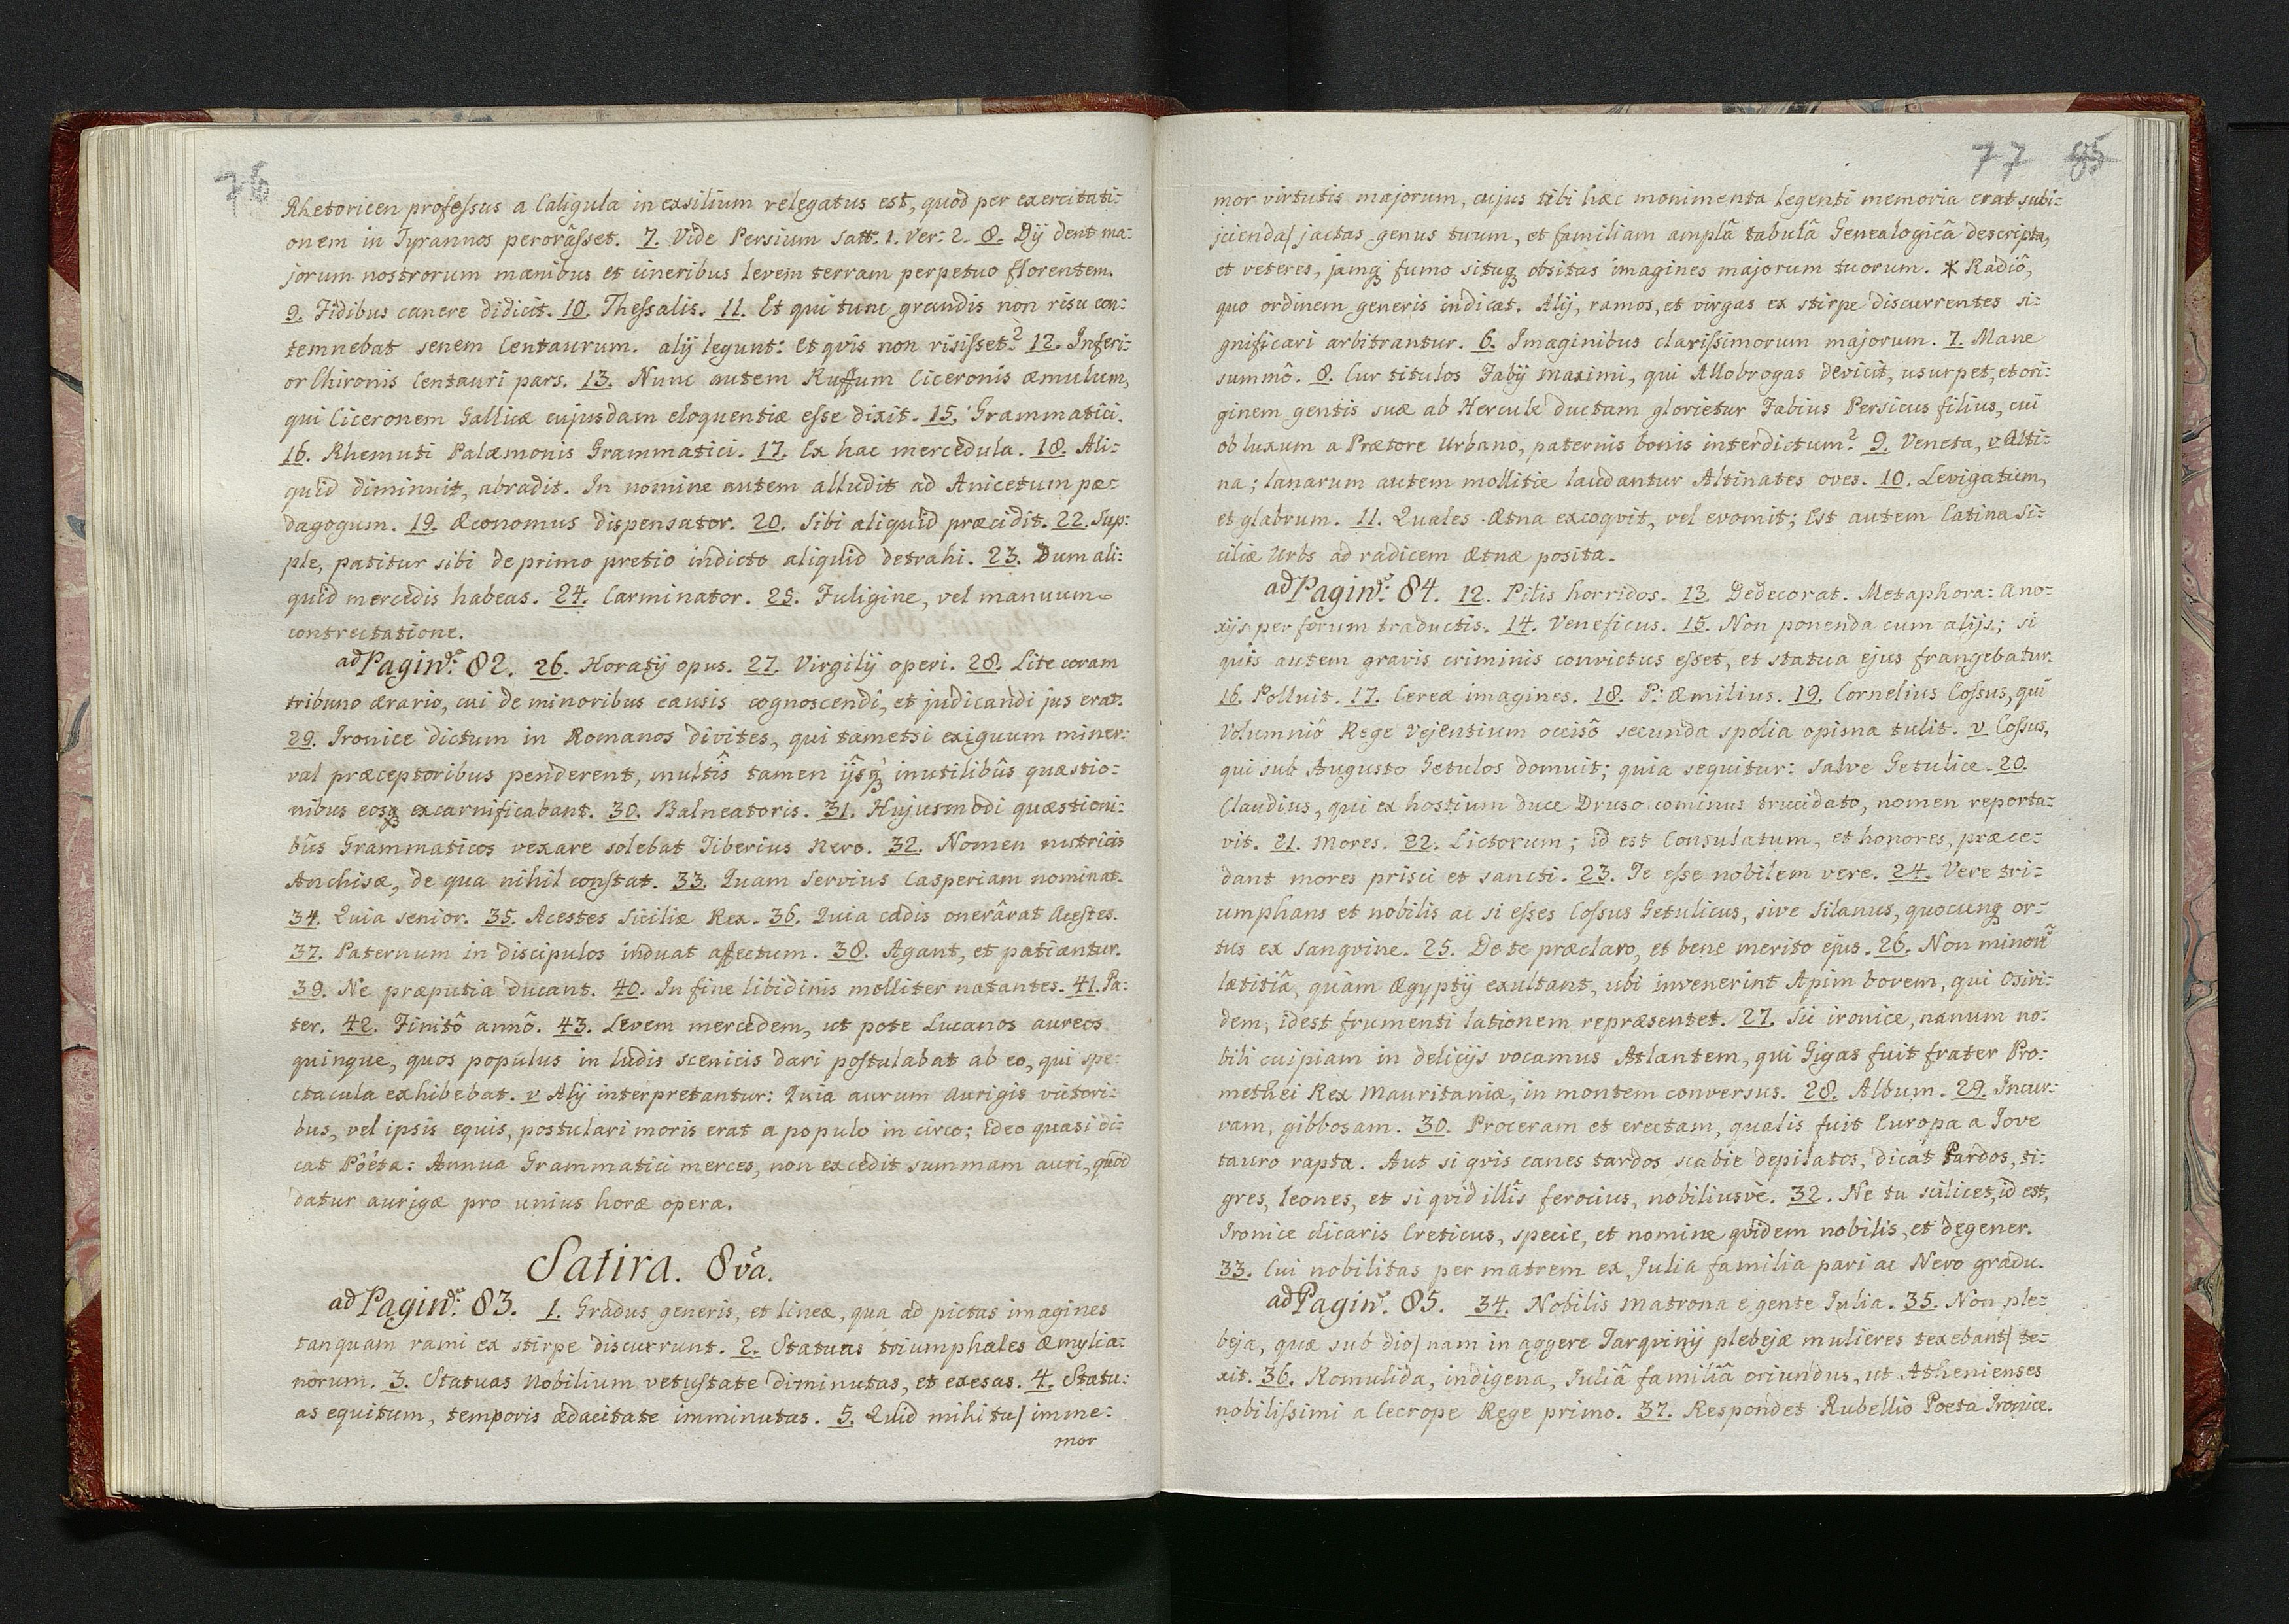 76
Rhetoricen professus a Caligula in exsilium relegatus est, quod per exercitati:
onem in Tyrannos perorâsset. 7. Vide Persium Satt: 1. Ver: 2. 8. Dij dent ma:
jorum nostrorum manibus et cineribus levem terram perpetuo florentem.
9. Fidibus canere didicit. 10. Thessalis. 11. Et qui tunc grandis non risu con:
temnebat senem Centaurum. alij legunt: Et qvis non risisset? 12. Inferi:
or Chironis Centauri pars. 13. Nunc autem Ruffum Ciceronis æmulum,
qui Ciceronem Gallicæ cujusdam eloquentiæ esse dixit. 15. Grammatici.
16. Rhemuti Palæmonis Grammatici. 17. Ex hac mercedula. 18. Ali:
quid diminuit, abradit. In nomine autem alludit ad Anicetum pæ:
dagogum. 19. Æconomus dispensator. 20. Sibi aliquid præcidit. 22. Sup:
ple, patitur sibi de primo pretio indicto aliquid detrahi. 23. Dum ali:
quid mercedis habeas. 24. Carminator. 25. Fuligine, vel manuum
contrectatione.
ad Pagin: 82. 26. Horatij opus. 27. Virgilij operi. 28. Lite coram
tribuno ærario, cui de minoribus causis cognoscendi, et judicandi jus erat.
29. Ironice dictum in Romanos divites, qui tametsi exiguum miner:
val præceptoribus penderent, multîs tamen ijsq inutilibûs quæstio:
nibus eosq excarnificabant. 30. Balneatoris. 31. Hujusmodi quæstioni:
bûs Grammaticos vexare solebat Tiberius Nero. 32. Nomen nutricis
Anchisæ, de qua nihil constat. 33. Quam Servius Casperiam nominat.
34. Quia senior. 35. Acestes Siciliæ Rex. 36. Quia cadis onerârat Acestes.
37. Paternum in discipulos induat affectum. 38. Agant, et patiantur.
39. Ne præputia ducant. 40. In fine libidinis molliter natantes. 41. Pa:
ter. 42. Finitô annô. 43. Levem mercedem, ut pote Lucanos aureos
quinque, quos populus in ludis scenicis dari postulabat ab eo, qui spe:
ctacula exhibebat. v Alij interpretantur: Quia aurum Aurigis victori:
bus, vel ipsis equis, postulari moris erat a populo in circo; ideo quasi di:
cat Pöéta: Annua Grammatici merces, non excedit summam auri, quod
datur aurigæ pro unius horæ opera.
Satira. 8va.
ad Pagin: 83. 1. Gradus generis, et lineæ, qua ad pictas imagines
tanquam rami ex stirpe discurrunt. 2. Statuas triumphales Æmylia:
norum. 3. Statuas Nobilium vetustate diminutas, et exesas. 4. Statu:
as equitum, temporis ædacitate imminutas. 5. Quid mihi tu/ imme:
mor
77 85
mor virtutis majorum, cujus tibi hæc monimenta legenti memoria erat subi:
jcienda/ jactas genus tuum, et familiam amplâ tabulâ Genealogicâ descripta,
et veteres, jamq fumo situq obsitas imagines majorum tuorum. * Radiô,
quo ordinem generis indicat. Alij, ramos, et virgas ex stirpe discurrentes si:
gnificari arbitrantur. 6. Imaginibus clarissimorum majorum. 7. Mane
summô. 8. Cur titulos Fabij Maximi, qui Allobrogas devicit, usurpet, et ori:
ginem gentis suæ ab Hercule ductam glorietur Fabius Persicus filius, cui
ob luxum a Prætore Urbano, paternis bonis interdictum? 9. Veneta, v Alti:
na; lanarum autem mollitie laudantur Altinates oves. 10. Levigatum,
et glabrum. 11. Quales Ætna excoqvit, vel evomit; Est autem Catina Si:
ciliæ Urbs ad radicem Ætnæ posita.
ad Pagin: 84. 12. Pilis horridos. 13. Dedecorat. Metaphora: a no:
xijs per forum traductis. 14. Veneficus. 15. Non ponenda cum alijs; si
quis autem gravis criminis convictus esset, et statua ejus frangebatur.
16. Polluit. 17. Cereæ imagines. 18. P: Æmilius. 19. Cornelius Cossus, qui
Volumniô Rege Vejentium occisô secunda spolia opima tulit. v Cossus,
qui sub Augusto Getulos domuit; quia sequitur: Salve Getulice. 20.
Claudius, qui ex hostium duce Druso cominus trucidato, nomen reporta:
vit. 21. Mores. 22. Lictorum; id est Consulatum, et honores, præce:
dant mores prisci et sancti. 23. Te esse nobilem vere. 24. Vere tri:
umphans et nobilis ac si esses Cossus Getulicus, sive Silanus, quocunq or:
tus ex sanqvine. 25. De te præclaro, et bene merito ejus. 26. Non minori
lætitiâ, quàm Ægyptij exultant, ubi invenerint Apim bovem, qui Osiri:
dem, idest frumenti lationem repræsentet. 27. Sic ironice, nanum no:
bili cuipiam in delicijs vocamus Atlantem, qui Gigas fuit frater Pro:
methei Rex Mauritaniæ, in montem conversus. 28. Album. 29. Incur:
vam, gibbosam. 30. Proceram et erectam, qualis fuit Europa a Jove
tauro rapta. Aut si qvis canes tardos scabie depilatos, dicat Pardos, ti:
gres, leones, et si qvid illîs ferocius, nobiliusvè. 32. Ne tu scilicet, id est,
Ironice dicaris Creticus, specie, et nomine qvidem nobilis, et degener.
33. Cui nobilitas per matrem ex Julia familia pari ac Nero gradu.
ad Pagin: 85. 34. Nobilis Matrona e gente Julia. 35. Non ple:
beja, quæ sub dio/ nam in aggere Tarqvinij plebejæ mulieres texebant/ te:
xit. 36. Romulida, indigena, Juliâ familiâ oriundus, ut Athenienses
nobilissimi a Cecrope Rege primo. 37. Respondet Rubellio Poeta Ironice.